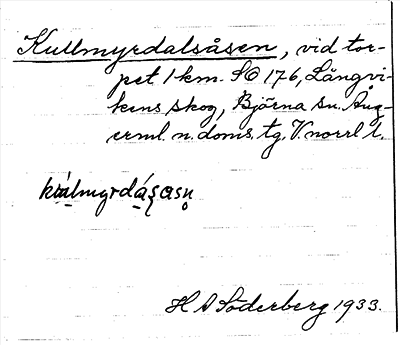 Kullmyrdalsåsen, vid tor-
pet 1 km. SO 176, Långvi-
kens skog, Björna sn. Ång-
erml. n. doms. tg. V. norrl l.
H A Söderberg 1933.